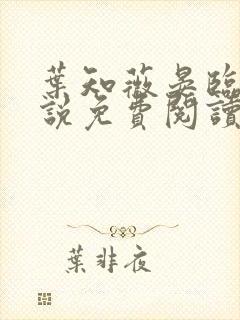 葉知薇晏臨
說免費閱讀
葉非夜